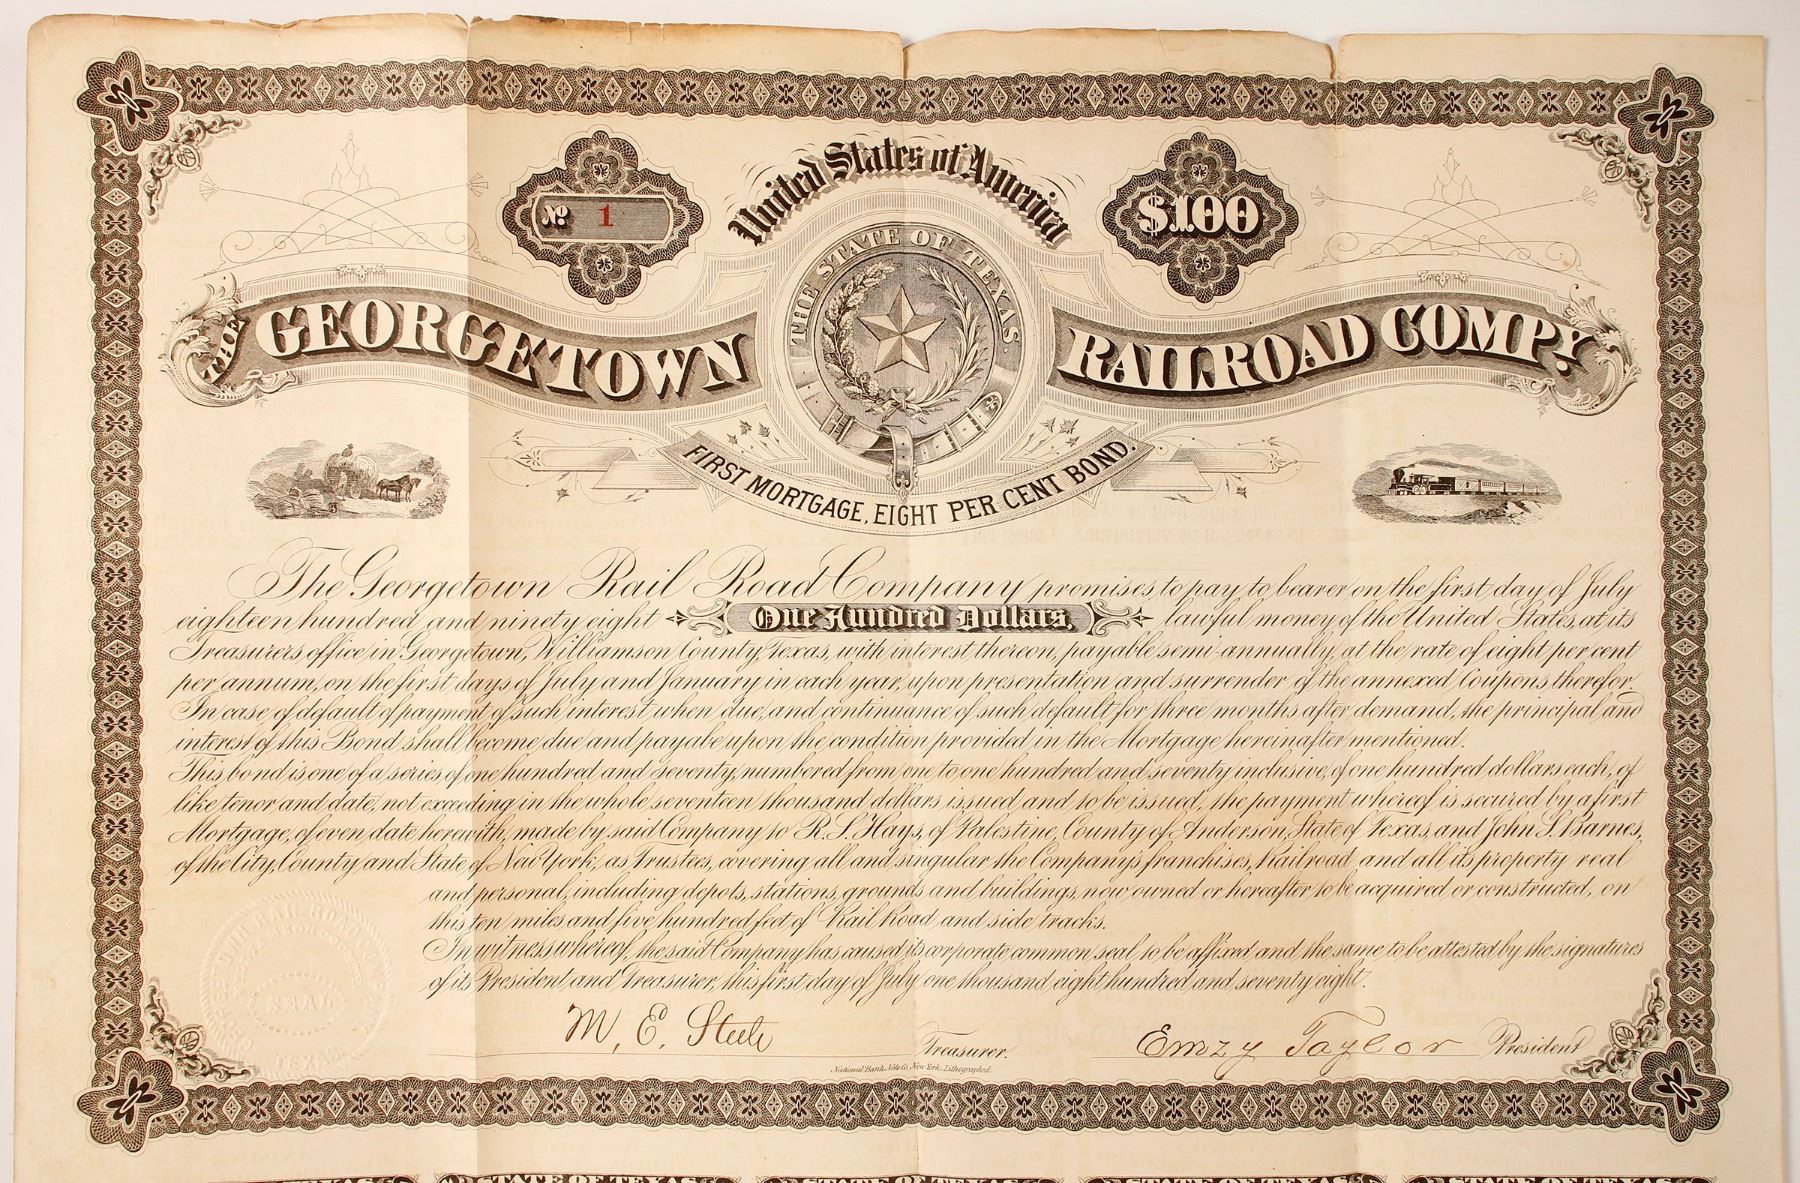 United States of America
No 1
$100
THE STATE OF TEXAS.
THE GEORGETOWN RAILROAD COMPY.
FIRST MORTGAGE, EIGHT PER CENT BOND.
The Georgetown Rail Road Company promises to pay to bearer on the first day of July
eighteen hundred and ninety eight One Hundred Dollars, lawful money of the United States, at its
Treasurers office in Georgetown, Williamson County, Texas, with interest thereon, payable semi-annually, at the rate of eight per cent
per annum, on the first days of July and January in each year, upon presentation and surrender of the annexed Coupons therefor.
In case of default of payment of such interest when due, and continuance of such default for three months after demand, the principal and
interest of this Bond shall become due and payable upon the condition provided in the Mortgage hereinafter mentioned.
This bond is one of a series of one hundred and seventy, numbered from one to one hundred and seventy inclusive, of one hundred dollars each, of
like tenor and date, not exceeding in the whole seventeen thousand dollars issued and to be issued, the payment whereof is secured by a first
Mortgage, of even date herewith, made by said Company to R. S. Hays, of Palestine, County of Anderson, State of Texas, and John S. Barnes,
of the City, County and State of New York, as Trustees, covering all and singular the Company's franchises, Railroad and all its property real
and personal, including depots, stations, grounds and buildings, now owned or hereafter to be acquired or constructed, on
this ten miles and five hundred feet of Rail Road and side tracks.
In witness whereof, the said Company has caused its corporate common seal to be affixed and the same to be attested by the signatures
of its President and Treasurer, this first day of July one thousand eight hundred and seventy eight.
M. E. Steele Treasurer.
Emzy Taylor President
National Bank Note Co. New York, Lithographed.
SEAL
STATE OF TEXAS
STATE OF TEXAS
STATE OF TEXAS
STATE OF TEXAS